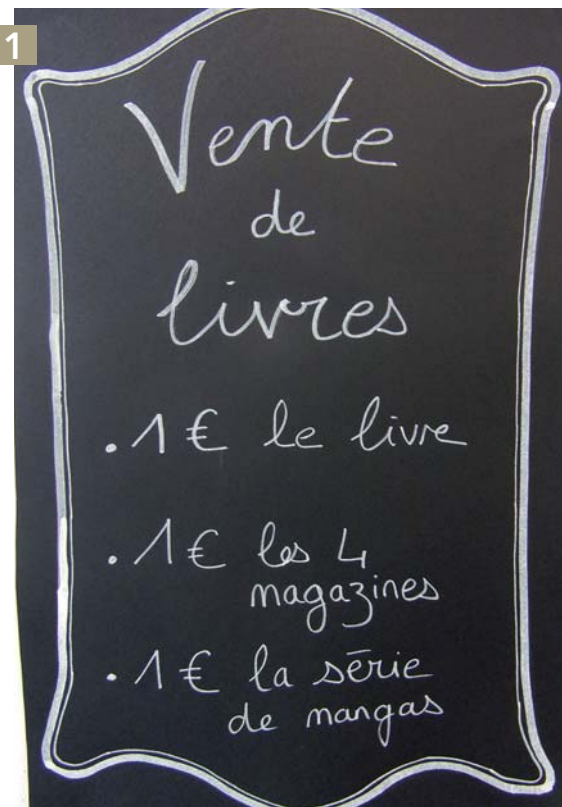 1
Vente
de
livres
. 1 € le livre
. 1 € les 4
magazines
. 1 € la série
de mangas